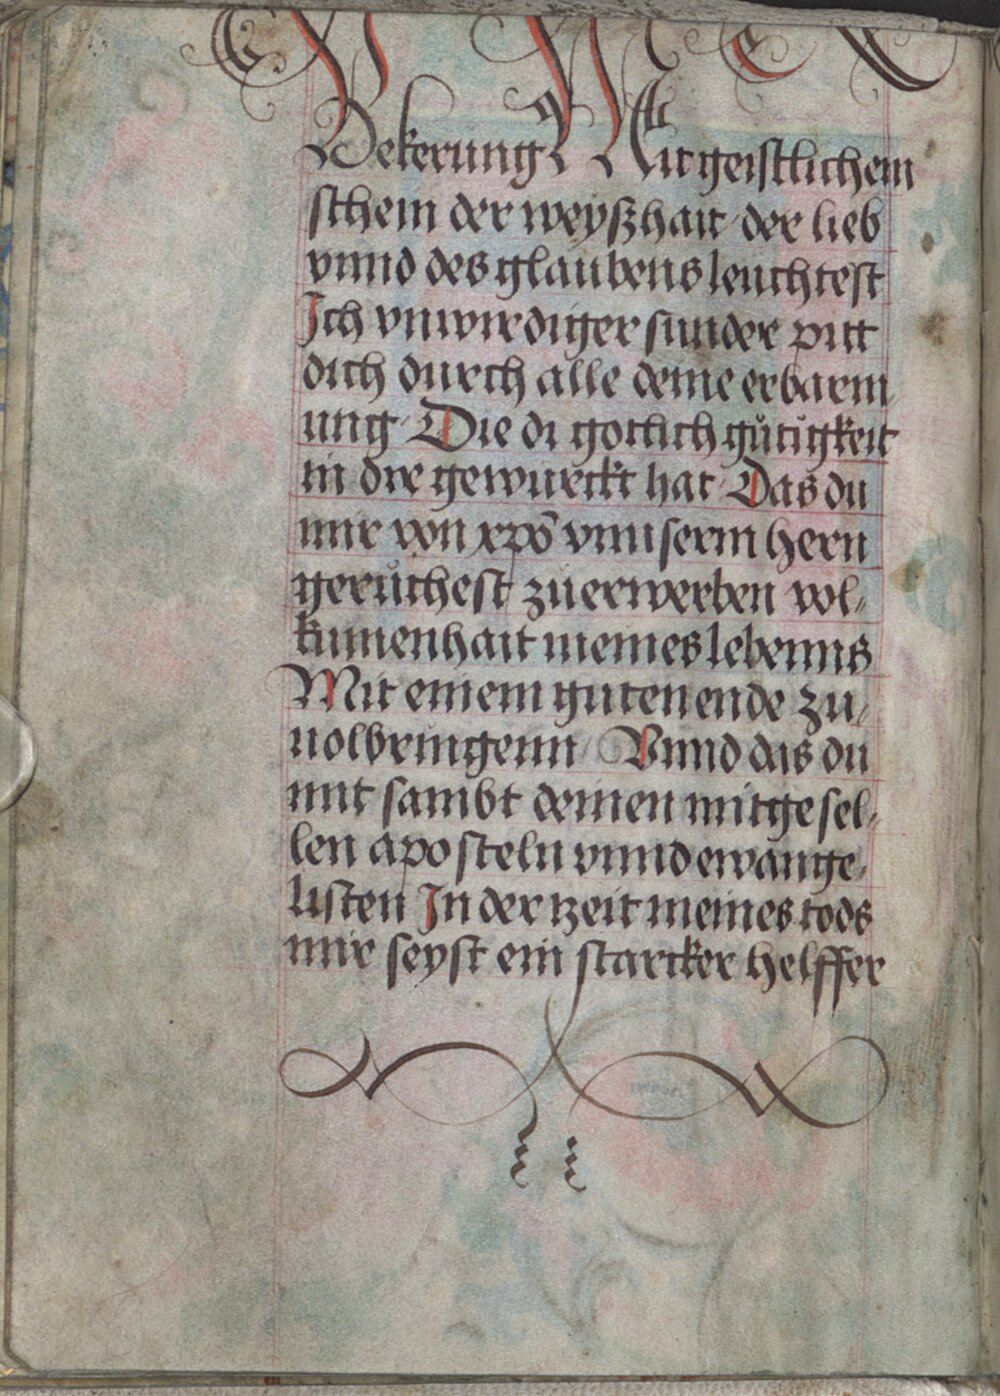 Bekerung Mit geistlichem
schein der weyßhait der lieb
vnnd des glaubens leuchtest
Ich vnwirdiger sunder pitt
dich durch alle deine erbarm
ung Die di gotlich gůtigkeit
in dir gewurckt hat Das du
mir von xpō vnnserm hern
gerůchest zu erwerben vol⸗
kumenhait meines lebenns
Mit einem guten ende zu⸗
uolbringenn Vnnd das du
mit sambt deinen mitgesel⸗
len aposteln vnnd ewange⸗
listen In der tzeit meines tods
mir seyst ein starcker helffer